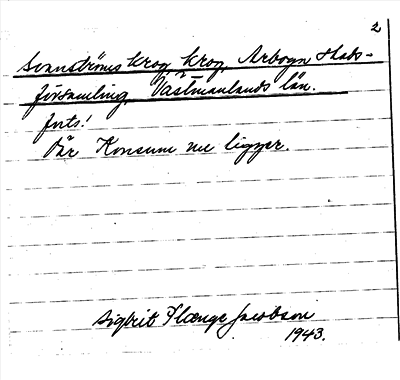 2
Svanströms krog, krog, Arboga stads-
församling, Västmanlands län.
forts!
Där Konsum nu ligger.
Sigbrit Plænge Jacobson
1943.